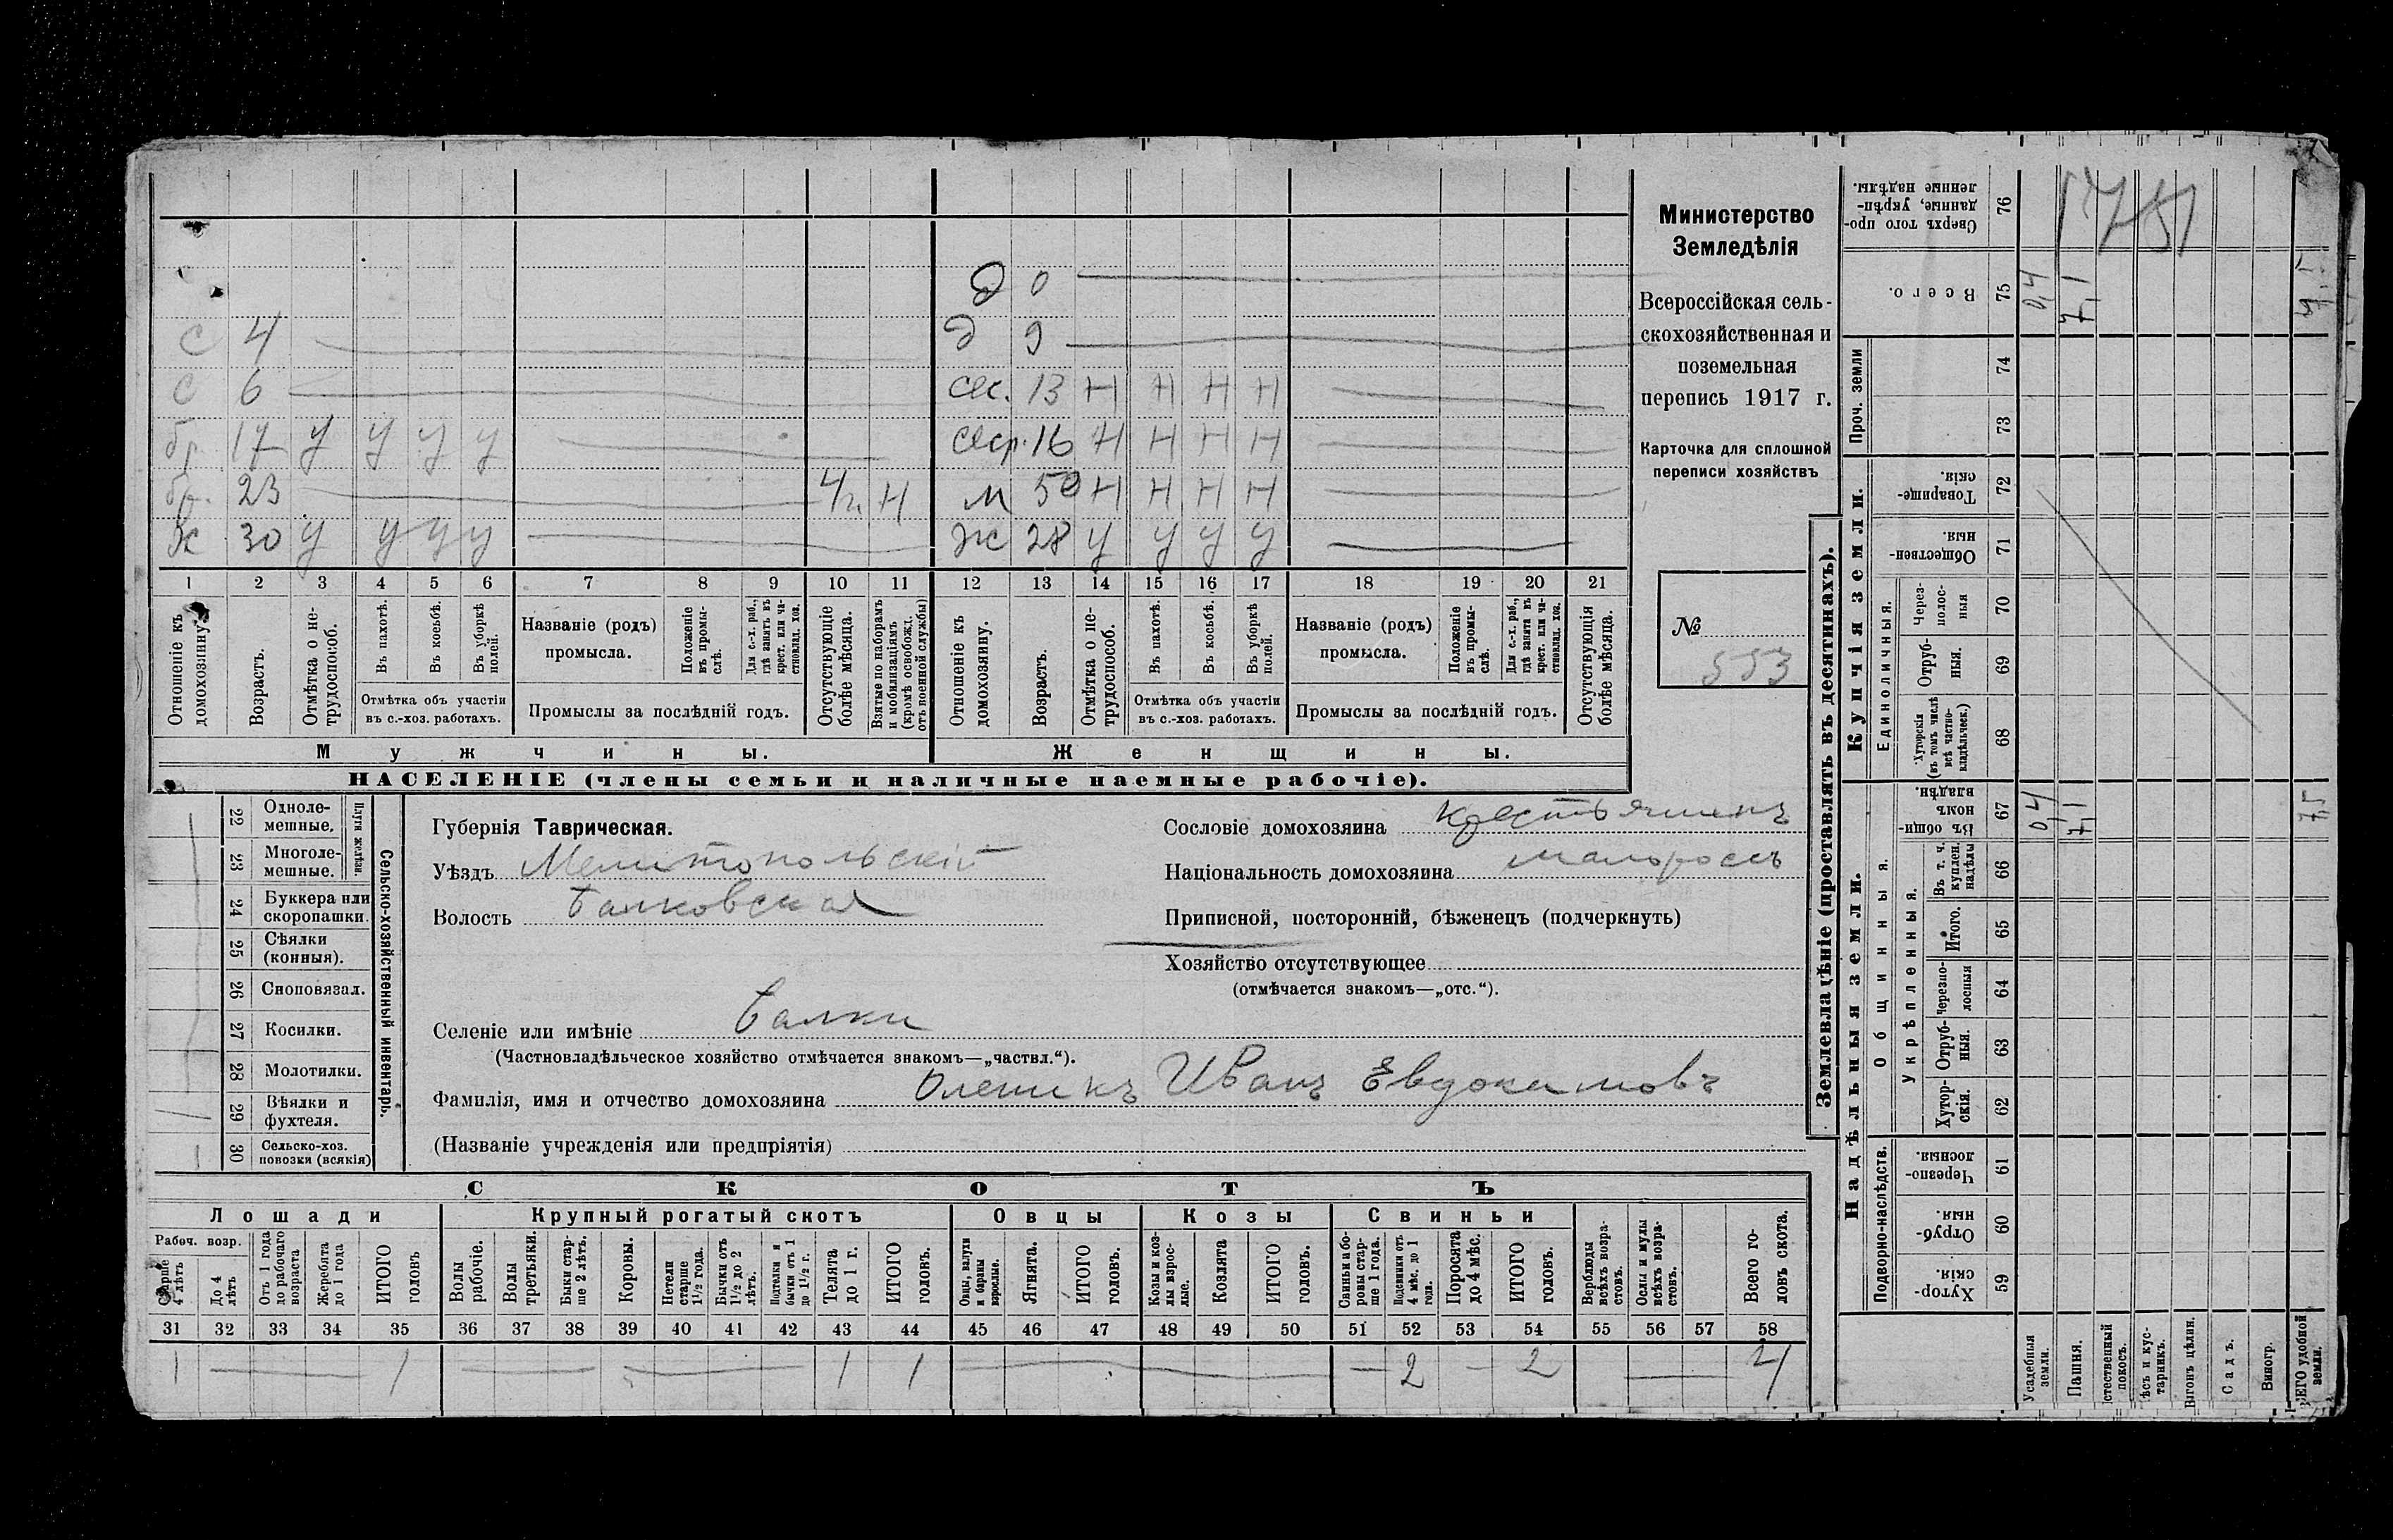 Министерство
Земледѣлія
Всероссійская сель-
скохозяйственная и
поземельная
перепись 1917 г.
Карточка для сплошной
переписи хозяйствъ
№
553
д 0
с 4 д 9
с 6 сес. 13 Н Н Н Н
бр 17 У У У У сестр. 16 Н Н Н Н
бр. 23 4/г. Н м 50 Н Н Н Н
х 30 У У У У ж 28 У У У У
1 2 3 4 5 6 7 8 9 10 11 12 13 14 15 16 17 18 19 20 21
Отношеніе къ домохозяину.
Возрастъ.
Отмѣтка о не-трудоспособ.
Въ пахотѣ.
Въ косьбѣ.
Въ уборкѣ полей.
Отмѣтка объ участіи
въ с.-хоз. работахъ.
Названіе (родъ)
промысла.
Положеніе въ промы-слѣ.
Для с.-х. раб., гдѣ занятъ въ крест. или ча-стновлад. хоз.
Промыслы за послѣдній годъ.
Отсутствующіе болѣе мѣсяца.
Взятые по наборамъ и мобилизаціямъ (кромѣ освобожд. отъ военной службы)
Отношеніе къ домохозяину.
Возрастъ.
Отмѣтка о не-трудоспособ.
Въ пахотѣ.
Въ косьбѣ.
Въ уборкѣ полей.
Отмѣтка объ участіи
въ с.-хоз. работахъ.
Названіе (родъ)
промысла.
Положеніе въ промы-слѣ.
Для с.-х. раб., гдѣ занята въ крест. или ча-стновлад. хоз.
Промыслы за послѣдній годъ.
Отсутствующія болѣе мѣсяца.
Мужчины. Женщины.
НАСЕЛЕНІЕ (члены семьи и наличные наемные рабочіе).
22 Одноле-мешные.
23 Многоле-мешные.
Плуги желѣзн.
24 Буккера или скоропашки.
25 Сѣялки (конныя).
26 Сноповязал.
27 Косилки.
28 Молотилки.
29 Вѣялки и фухтеля.
30 Сельско-хоз. повозки (всякія)
Сельско-хозяйственный инвентарь.
Губернія Таврическая.
Уѣздъ Мелитопольскій
Волость Балковская
Сословіе домохозяина крестьянинъ
Національность домохозяина малороссъ
Приписной, посторонній, бѣженецъ (подчеркнуть)
Хозяйство отсутствующее
(отмѣчается знакомъ—„отс.“).
Селеніе или имѣніе Балки
(Частновладѣльческое хозяйство отмѣчается знакомъ—„частвл.“).
Фамилія, имя и отчество домохозяина Олейникъ Иванъ Евдокимовъ
(Названіе учрежденія или предпріятія)
СКОТЪ
Лошади Крупный рогатый скотъ Овцы Козы Свиньи
Рабоч. возр.
Старше 4 лѣтъ
До 4 лѣтъ
Отъ 1 года до рабочаго возраста
Жеребята до 1 года
ИТОГО головъ
Волы рабочіе.
Волы третьяки.
Быки стар-ше 2 лѣтъ.
Коровы.
Нетели старше 1½ года.
Бычки отъ 1½ до 2 лѣтъ.
Подтелки и бычки отъ 1 до 1½ г.
Телята до 1 г.
ИТОГО головъ.
Овцы, валухи и бараны взрослые.
Ягнята.
ИТОГО головъ.
Козы и коз-лы взрос-лые.
Козлята
ИТОГО головъ.
Свиньи и бо-ровы стар-ше 1 года.
Подсвинки отъ 4 мѣс. до 1 года.
Поросята до 4 мѣс.
ИТОГО головъ.
Верблюды всѣхъ возра-стовъ.
Ослы и мулы всѣхъ возра-стовъ.
Всего го-ловъ скота.
31 32 33 34 35 36 37 38 39 40 41 42 43 44 45 46 47 48 49 50 51 52 53 54 55 56 57 58
1 — 1 — 1 1 — — 2 — 2 — 4
Землевладѣніе (проставлять въ десятинахъ).
Надѣльныя земли. Купчія земли. Проч. земли
Подворно-наслѣдств.
Общинныя.
Укрѣпленныя.
Единоличныя.
Хутор-скія. 59
Отруб-ныя. 60
Черезпо-лосныя. 61
Хутор-скія. 62
Отруб-ныя. 63
Черезпо-лосныя 64
Итого. 65
Въ т. ч. куплен. надѣлы 66
Въ общи-номъ владѣн. 67
Хуторскія (въ томъ числѣ всѣ частно-владѣльческ.) 68
Отруб-ныя. 69
Через-полос-ныя 70
Обществен-ныя. 71
Товарище-скія. 72
73
74
Всего. 75
Сверхъ того про-данные, укрѣп-ленные надѣлы. 76
Усадебныя земли. 0,4 0,4
Пашня. 7,1 7,1
Естественный покосъ.
Лѣсъ и кус-тарникъ.
Выгонъ цѣлин.
Садъ.
Виногр.
ВСЕГО удобной земли. 7,5 7,5